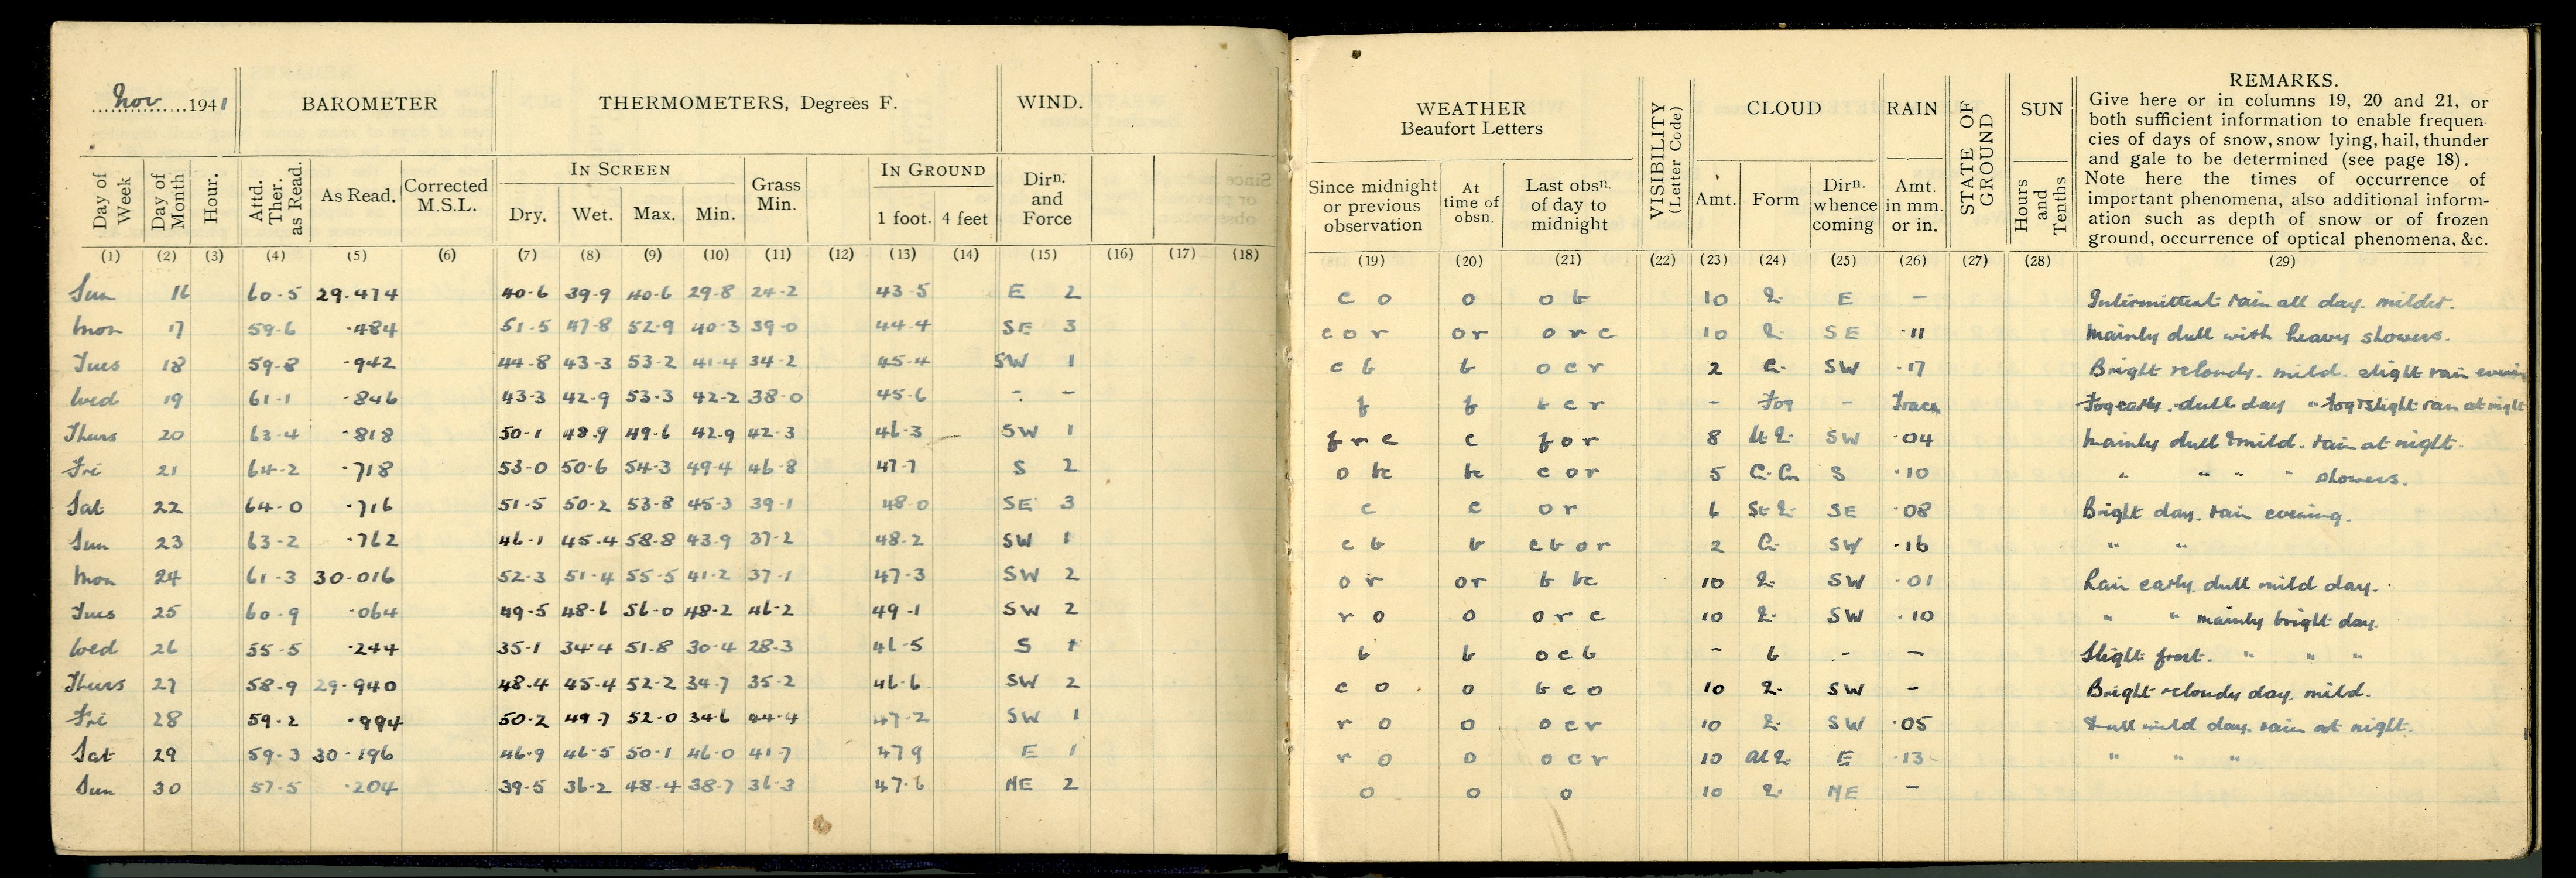 Nov 1941 BAROMETER THERMOMETERS, Degrees F. WIND.
Day of Week Day of Month Hour. Attd. Ther. as Read. As Read. Corrected M.S.L. IN SCREEN Dry. Wet. Max. Min. Grass Min. IN GROUND 1 foot. 4 feet Dirn. and Force
(1) (2) (3) (4) (5) (6) (7) (8) (9) (10) (11) (12) (13) (14) (15) (16) (17) (18)
Sun 16 60.5 29.474 40.6 39.9 40.6 29.8 24.2 43.5 E 2
Mon 17 59.6 .484 51.5 47.8 52.9 40.3 39.0 44.4 SE 3
Tues 18 59.8 .942 44.8 43.3 53.2 41.4 34.2 45.4 SW 1
Wed 19 61.1 .846 43.3 42.9 53.3 42.2 38.0 45.6 - -
Thurs 20 63.4 .818 50.1 48.9 49.6 42.9 42.3 46.3 SW 1
Fri 21 64.2 .718 53.0 50.6 54.3 49.4 46.8 47.7 S 2
Sat 22 64.0 .716 51.5 50.2 53.8 45.3 39.1 48.0 SE 3
Sun 23 63.2 .762 46.1 45.4 58.8 43.9 37.2 48.2 SW 1
Mon 24 61.3 30.016 52.3 51.4 55.5 41.2 37.1 47.3 SW 2
Tues 25 60.9 .064 49.5 48.6 56.0 48.2 46.2 49.1 SW 2
Wed 26 55.5 .244 35.1 34.4 51.8 30.4 28.3 46.5 S 1
Thurs 27 58.9 29.940 48.4 45.4 52.2 34.7 35.2 46.6 SW 2
Fri 28 59.2 .994 50.2 49.7 52.0 34.6 44.4 47.2 SW 1
Sat 29 59.3 30.196 46.9 46.5 50.1 46.0 41.7 47.9 E 1
Sun 30 57.5 .204 39.5 36.2 48.4 38.7 36.3 47.6 NE 2
WEATHER Beaufort Letters VISIBILITY (Letter Code) CLOUD RAIN STATE OF GROUND SUN
REMARKS.
Give here or in columns 19, 20 and 21, or
both sufficient information to enable frequen-
cies of days of snow, snow lying, hail, thunder
and gale to be determined (see page 18).
Note here the times of occurrence of
important phenomena, also additional inform-
ation such as depth of snow or of frozen
ground, occurrence of optical phenomena, &c.
Since midnight or previous observation At time of obsn. Last obsn. of day to midnight Amt. Form Dirn. whence coming Amt. in mm. or in. Hours and Tenths
(19) (20) (21) (22) (23) (24) (25) (26) (27) (28) (29)
c o o o b 10 E - Intermittent rain all day. milder.
c o r o r o r c 10 SE .11 Mainly dull with heavy showers.
c b b o c r 2 SW .17 Bright & cloudy. mild. slight rain evening
f f b c r - Fog - Trace Fog early. dull day " fog & slight rain at night
f r c c f o r 8 SW .04 Mainly dull & mild. rain at night.
o bc bc c o r 5 S .10 " " " " showers.
c c o r 6 SE .08 Bright day. rain evening.
c b b c b o r 2 SW .16 " "
o r o r b bc 10 SW .01 Rain early. dull mild day.
r o o o r c 10 SW .10 " " mainly bright day.
b b o c b - b - - Slight frost. " " "
c o o b c o 10 SW - Bright & cloudy day. mild.
r o o o c r 10 SW .05 Dull mild day. rain at night.
r o o o c r 10 E .13 " " "
o o o 10 NE -